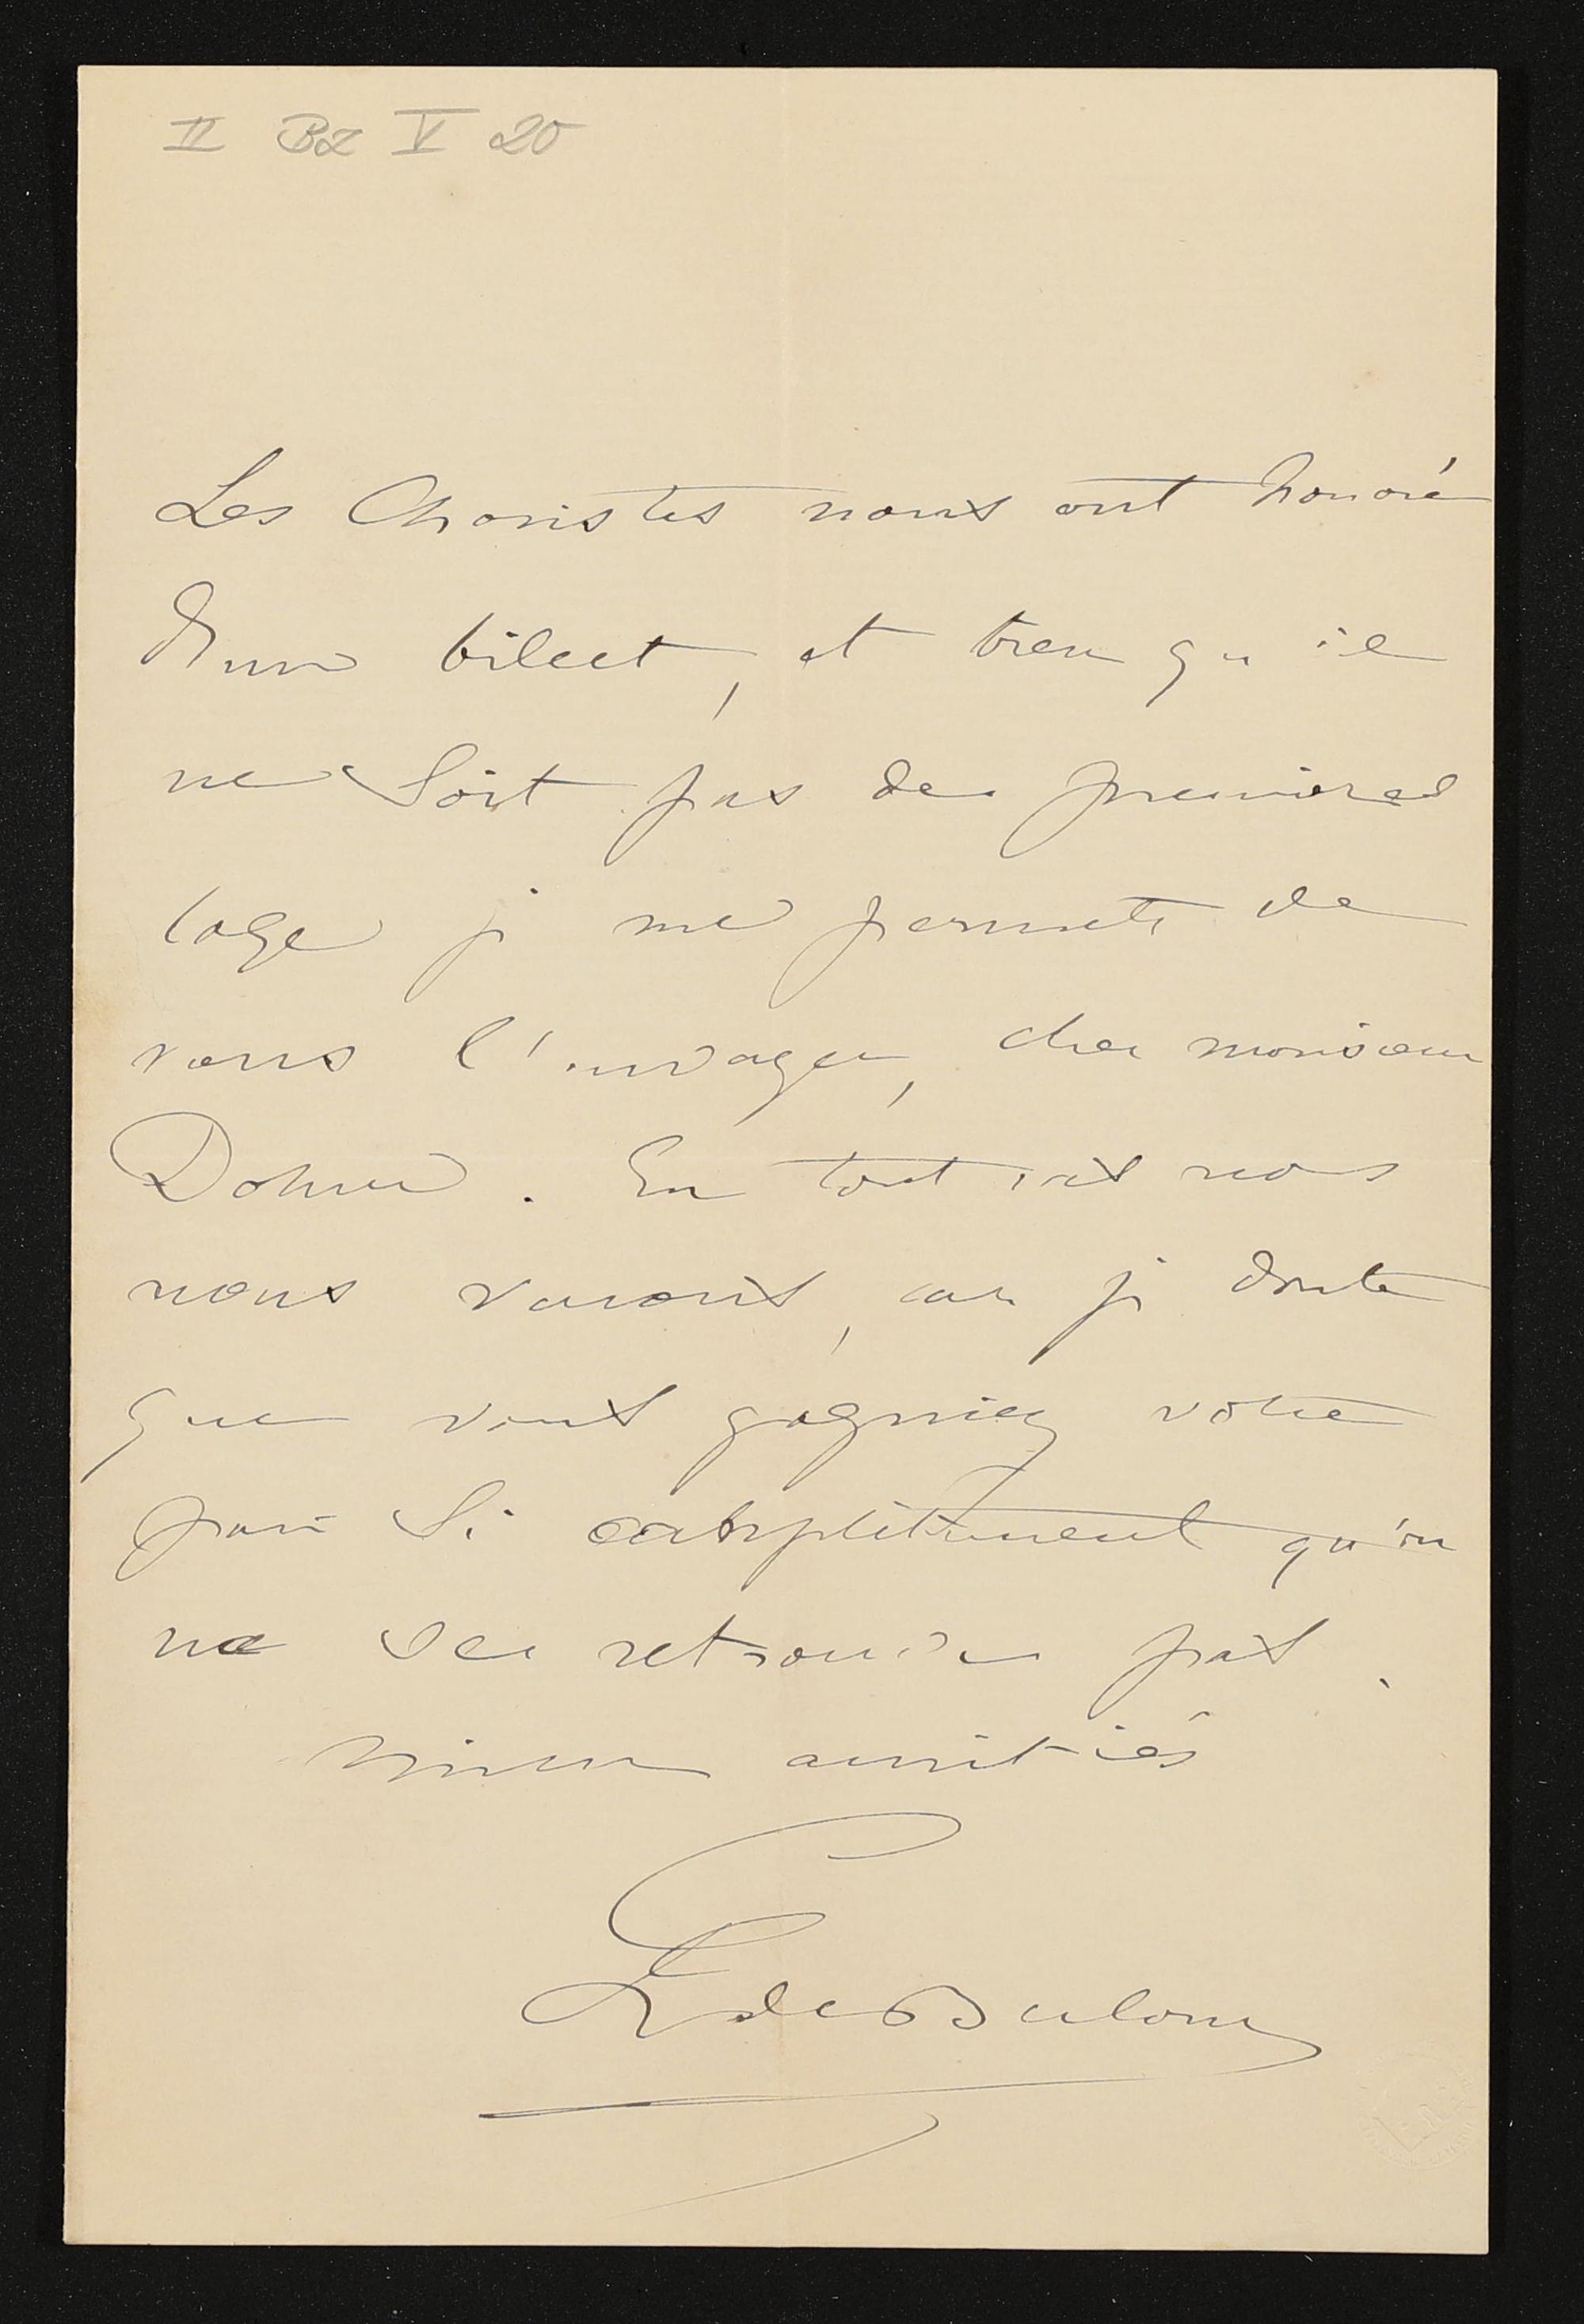 II BZ V 20
Les Choristes nous ont honoré
d'un billet, et bien qu'il
ne soit pas de premieres
loge je me permets de
vous l'envoyer, cher monsieur
Dohrn. En tout cas nous
nous verrons, car je doute
que vous gagniez votre
pari si complètement qu'on
ne se retrouve pas.
amitiés